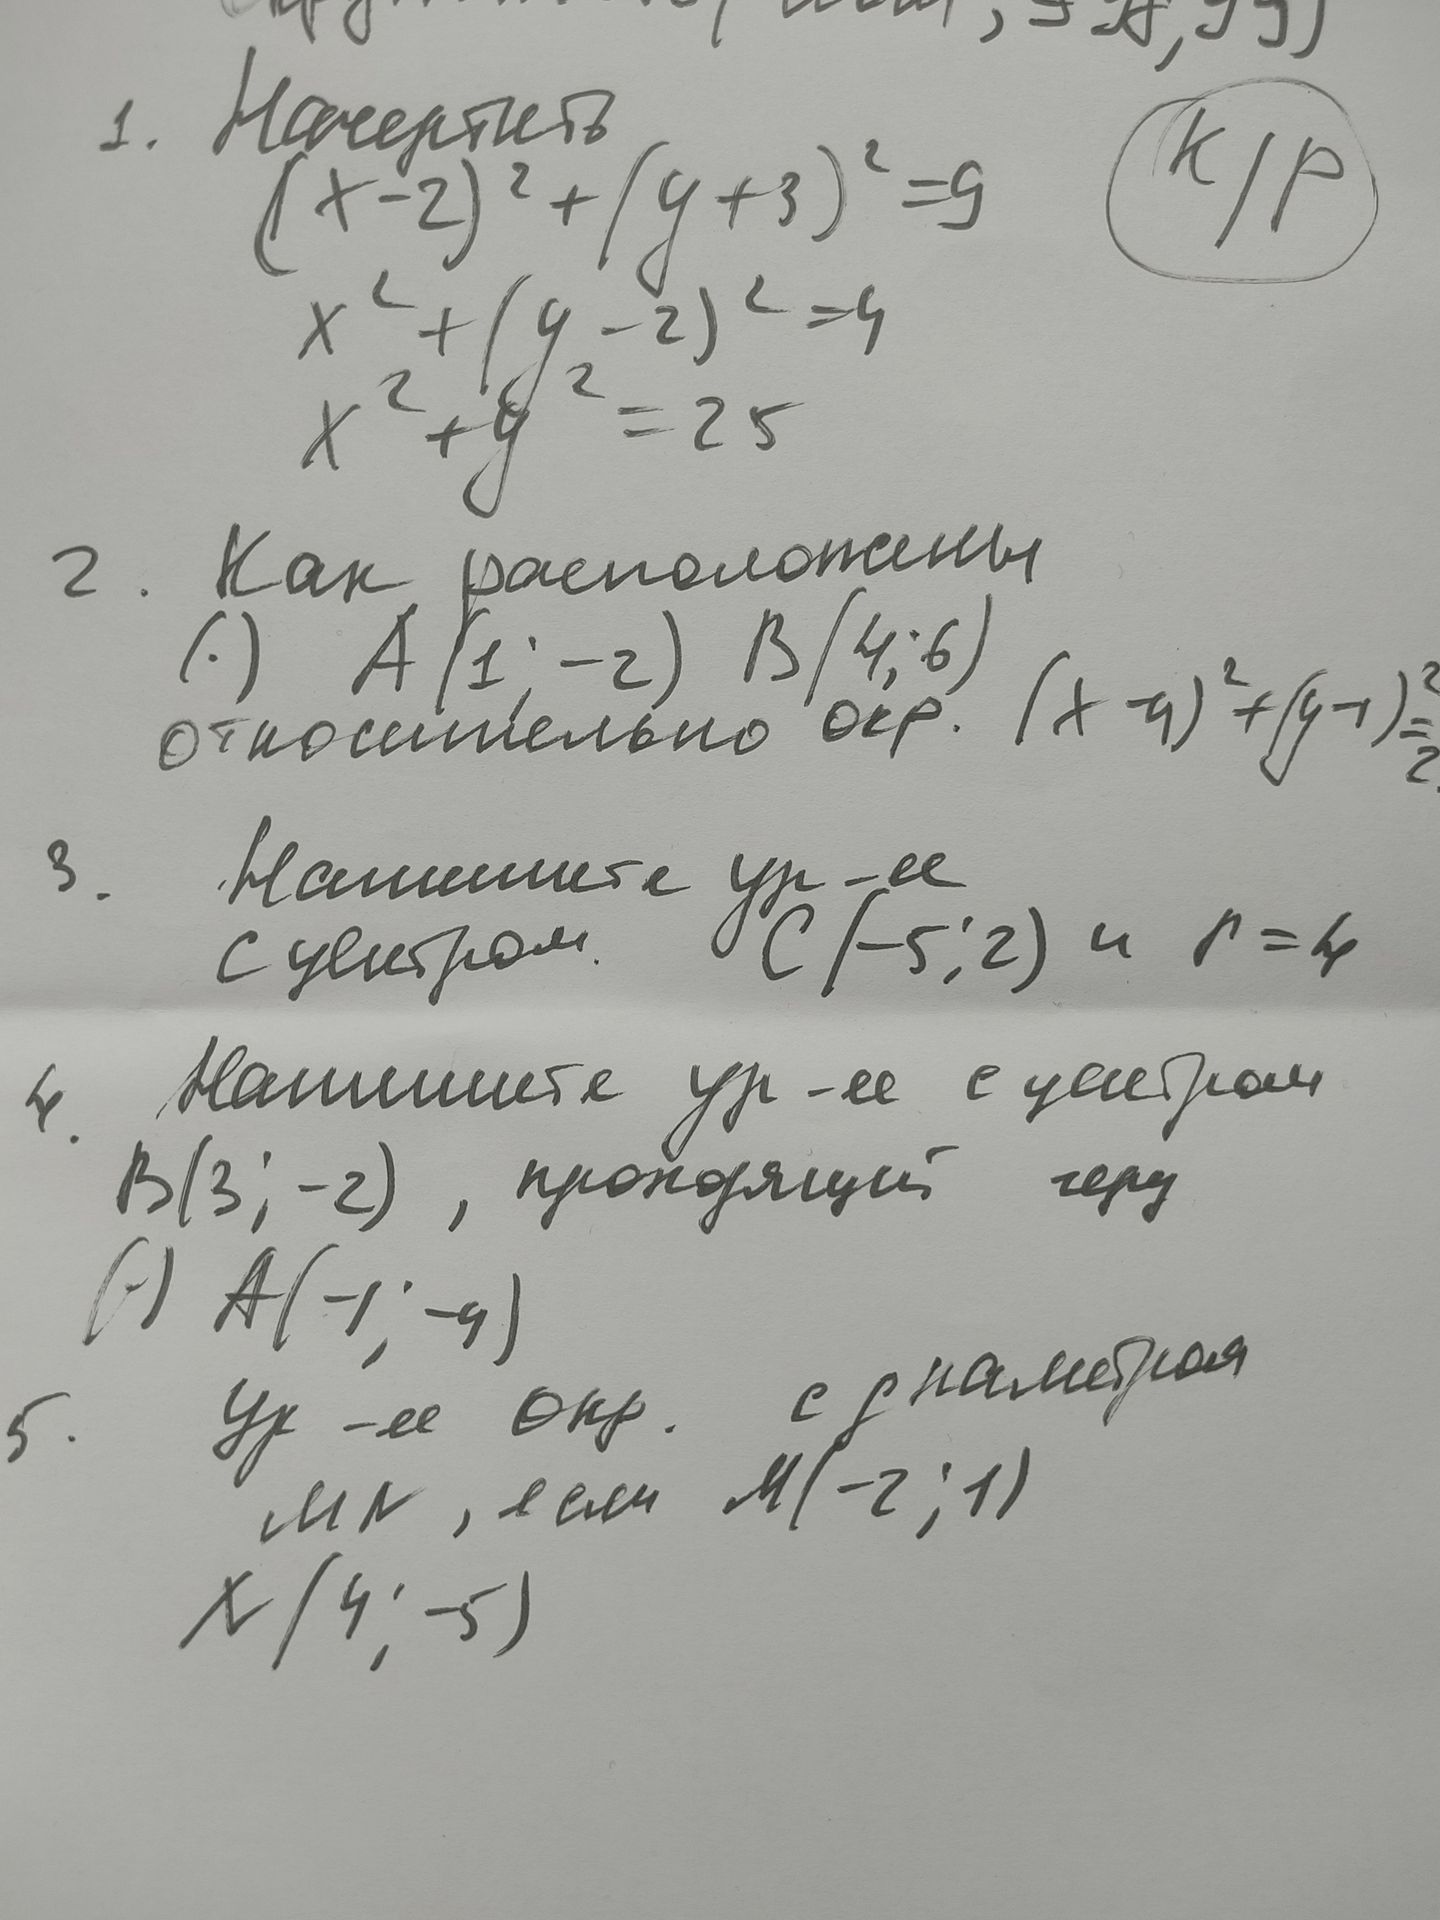 1. Начертить
К/Р
(x-2)² + (y+3)² = 9
x² + (y-2)² = 4
x² + y² = 25
2. Как расположены
(·) A(1; -2) B(4; 6)
относительно окр. (x-4)² + (y-1)² =
2
3. Напишите ур-ее
с центром. C(-5; 2) и r = 4
4. Напишите ур-ее с центром
B(3; -2), проходящий через
(·) A(-1; -4)
5. Ур-ее окр. с диаметром
MN, если M(-2; 1)
N(4; -5)